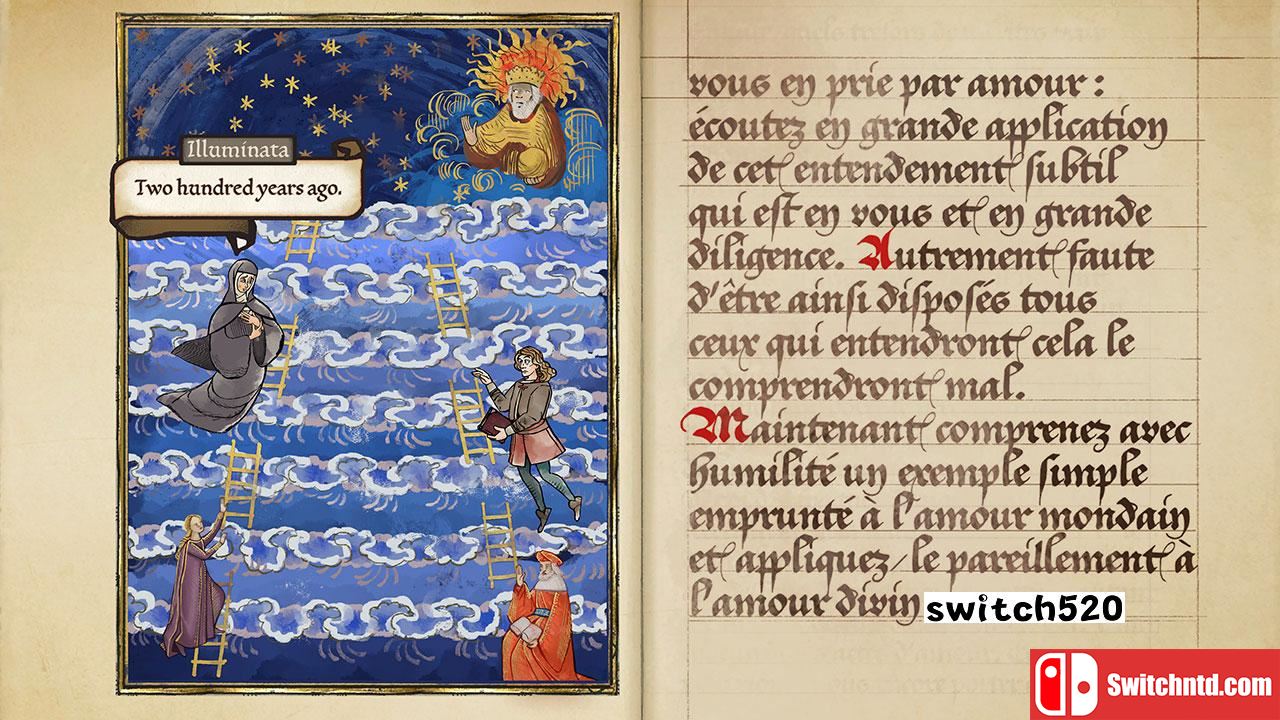 Illuminata
Two hundred years ago.
vous en prie par amour :
écoutez en grande application
de cet entendement subtil
qui est en vous et en grande
diligence. Autrement faute
d'être ainsi disposés tous
ceux qui entendront cela le
comprendront mal.
Maintenant comprenez avec
humilité un exemple simple
emprunté à l'amour mondain
et appliquez-le pareillement à
l'amour divin
switch520
Switchntd.com